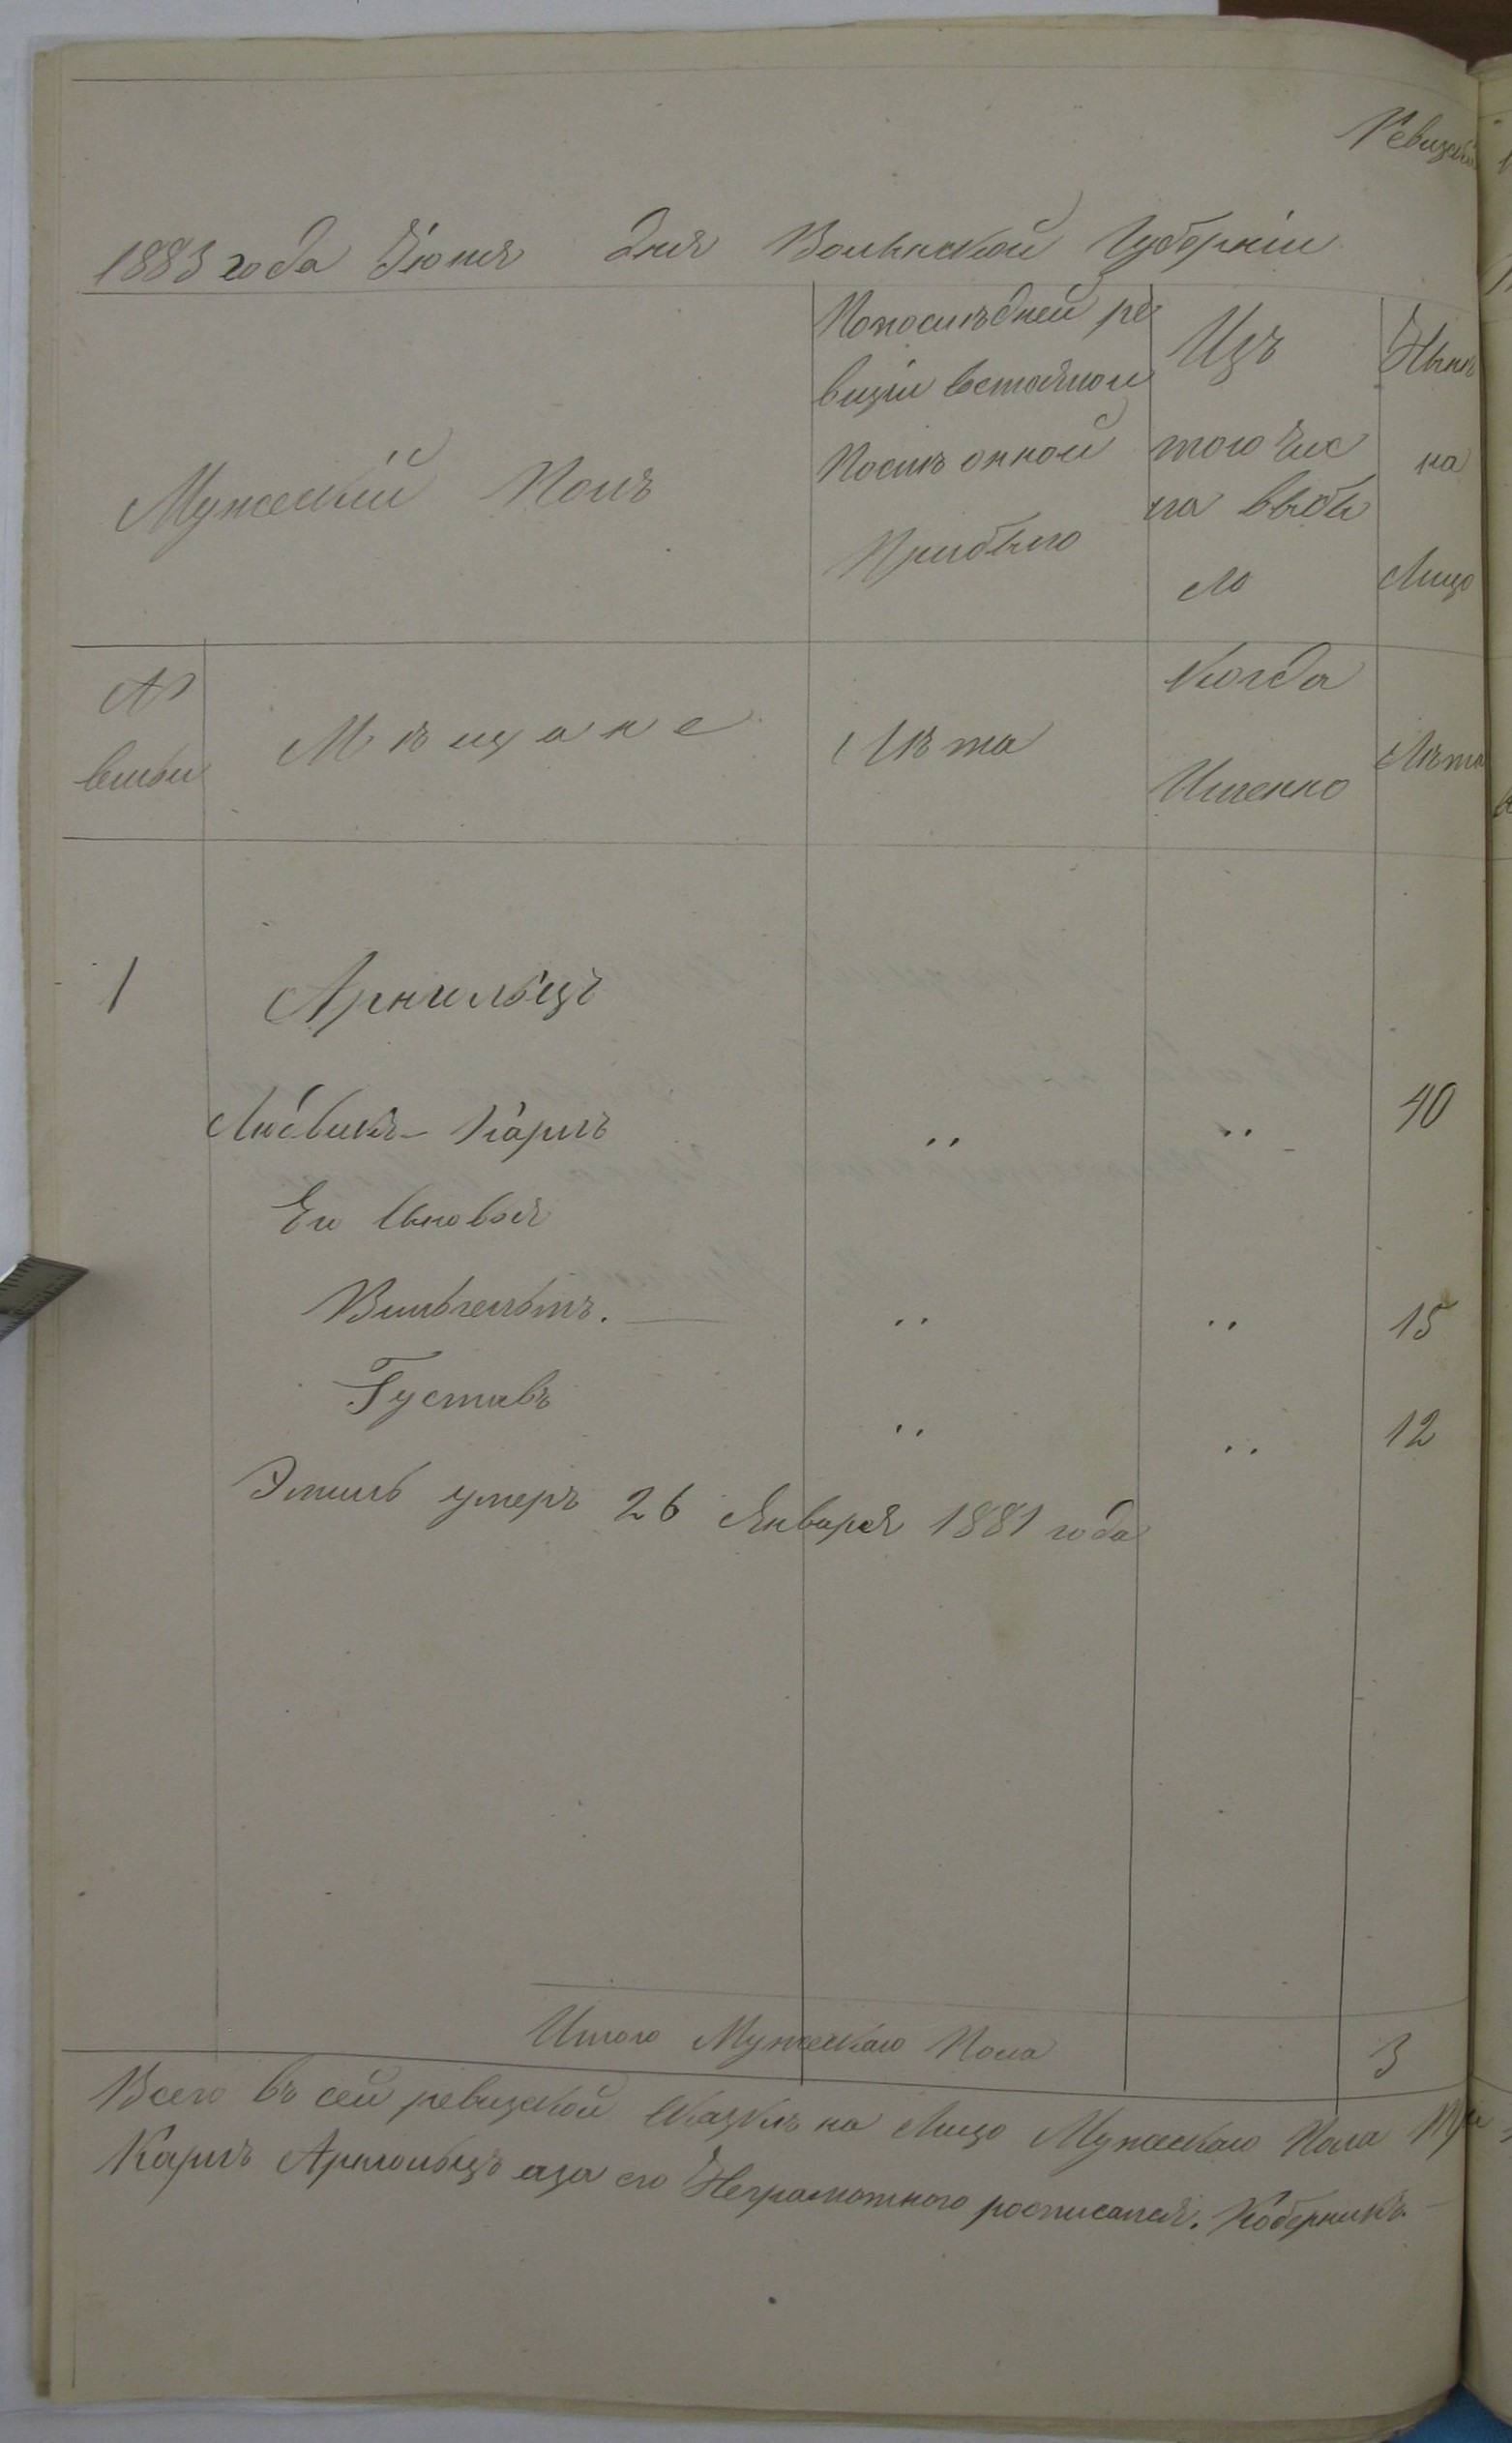 Ревизск
1883 года Іюня дня Волынской Губерніи
Мужескій Полъ
По послѣдней ре
визіи состояло и
Послѣ онной
Прибыло
Изъ
того чис
ла выбы
ло
Нынѣ
на
Лицо
№
семьи
Мѣщане
Лѣта
Когда
Именно
Лѣта
1 Арнгольцъ
Людвикъ-Карлъ „ „ 40
Его Сыновья
Вильгельмъ. — „ „ 15
Густавъ „ „ 12
Эмиль умеръ 26 Января 1881 года
Итого Мужескаго Пола 3
Всего въ сей ревизской сказкѣ на Лицо Мужескаго Пола Три
Карлъ Арнгольцъ а за его Неграмотного росписался. Коберникъ